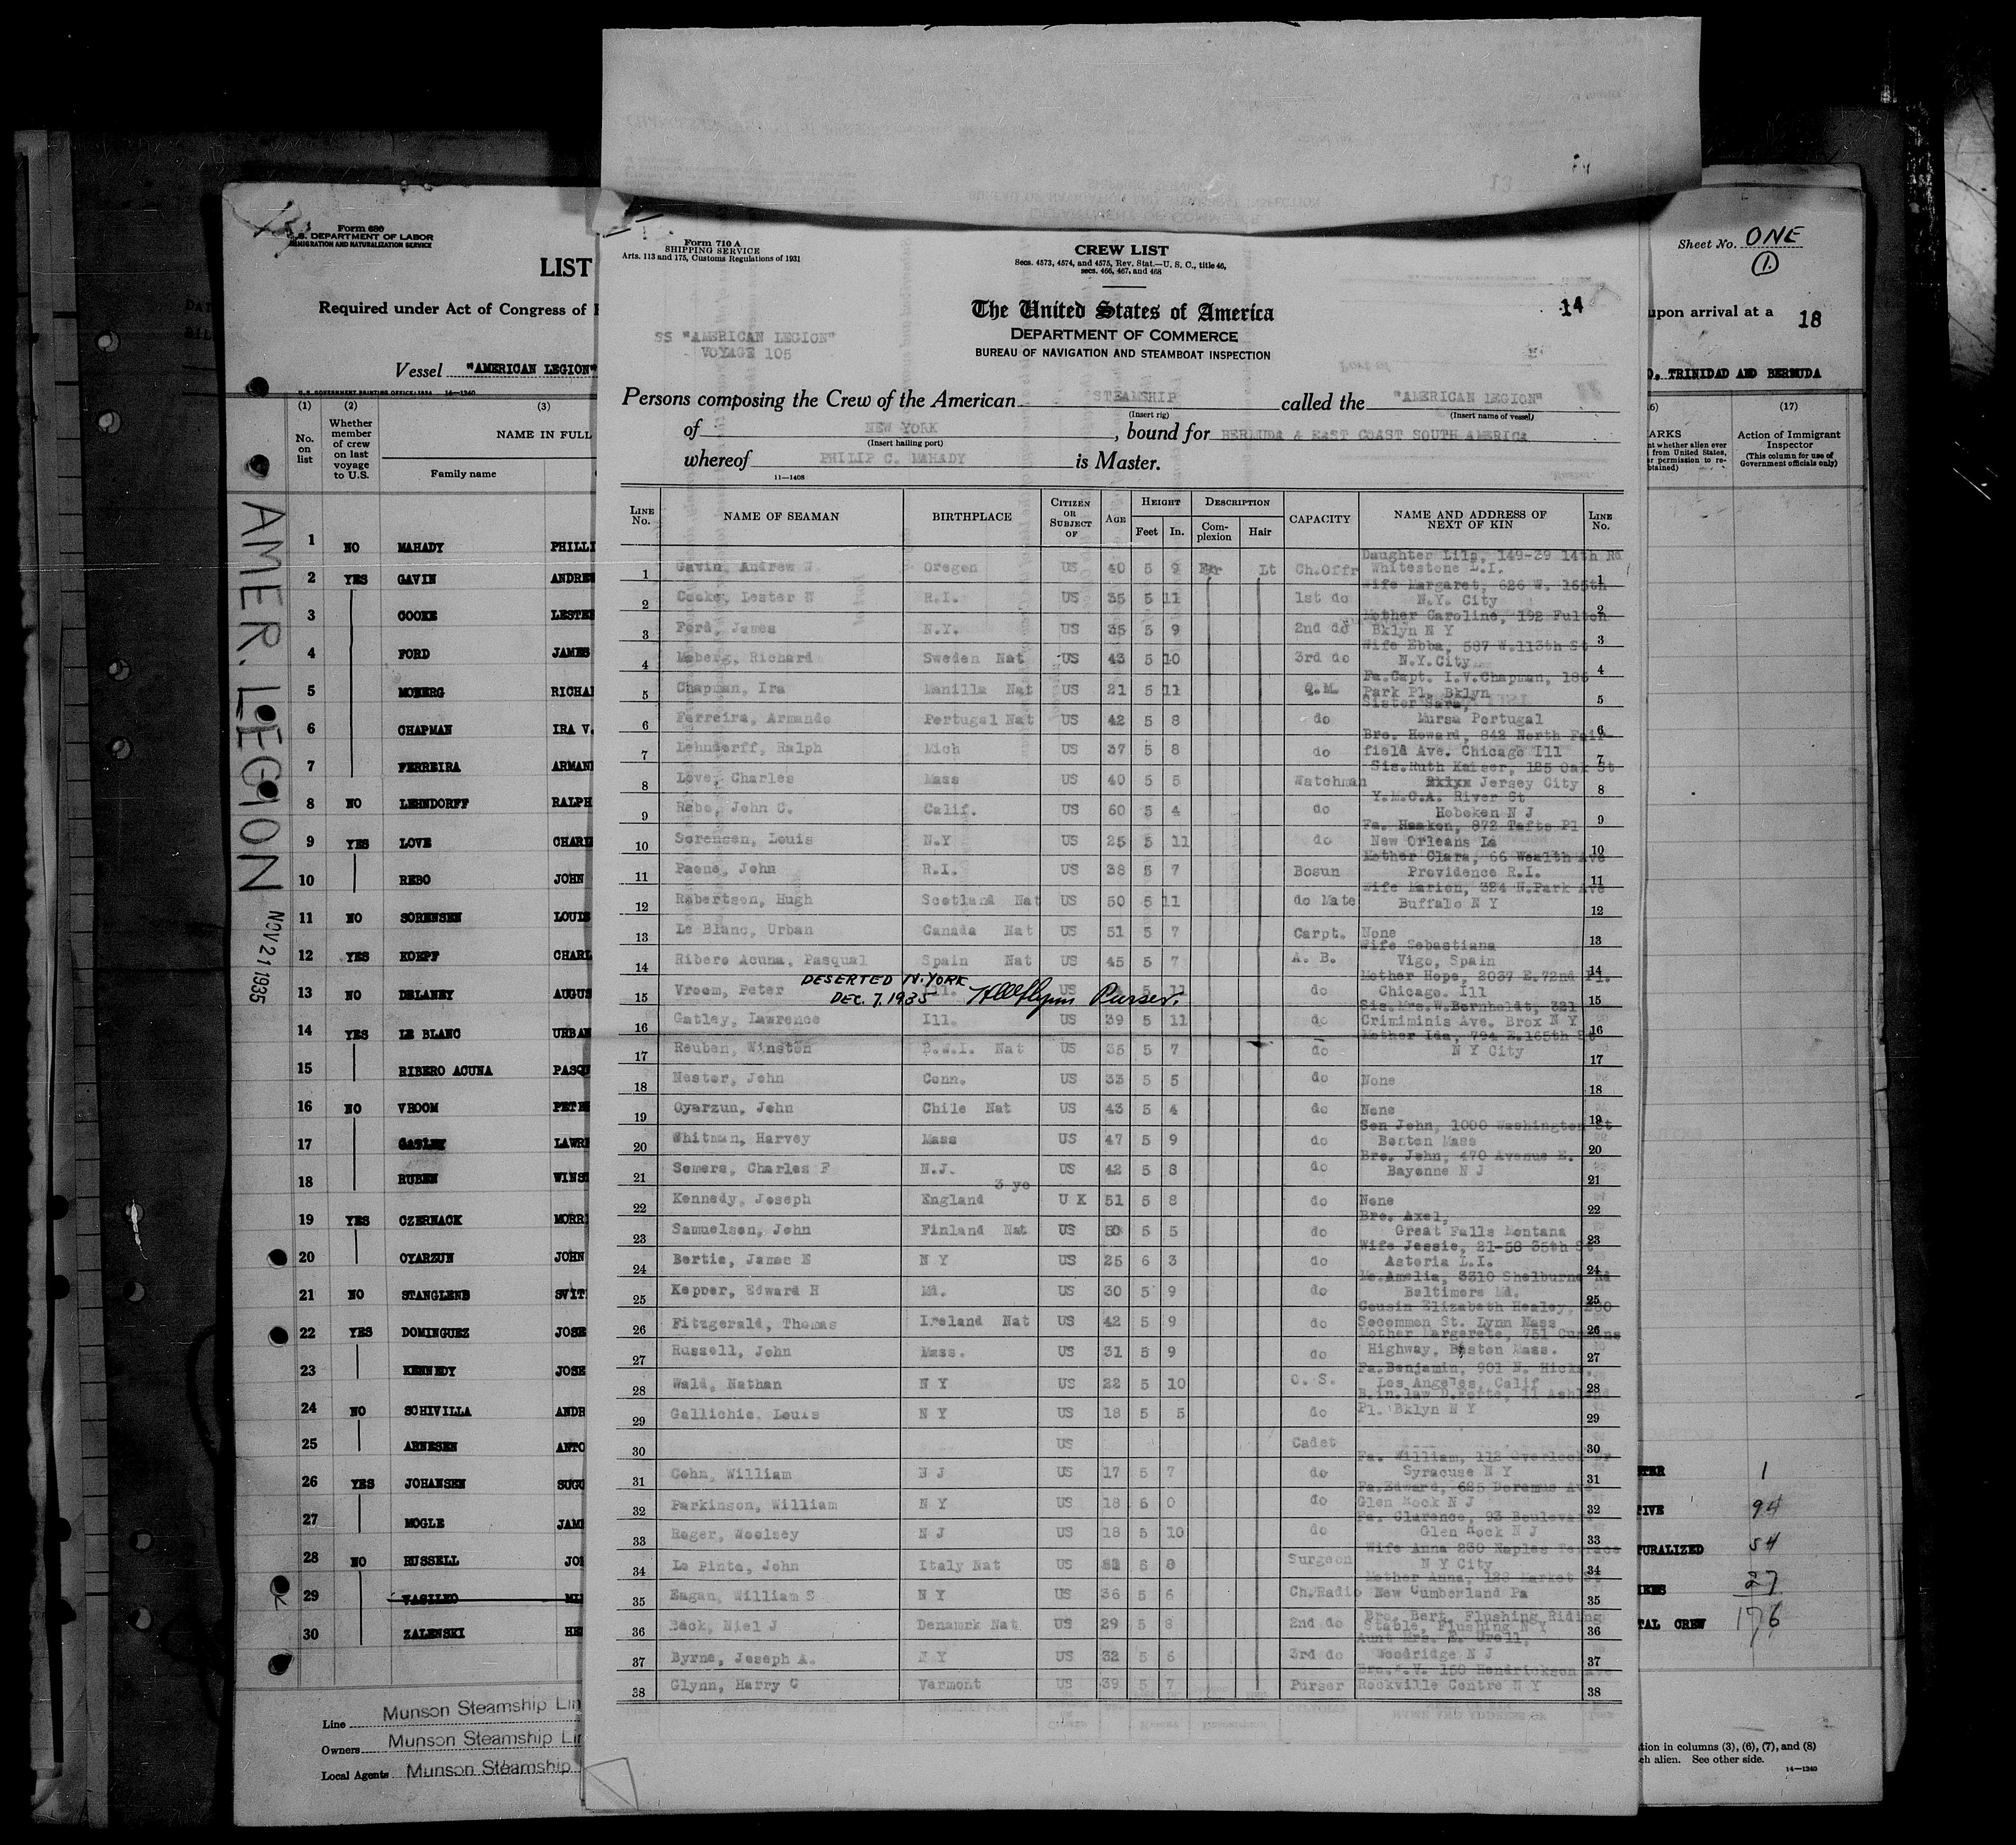 Form 680
U. S. DEPARTMENT OF LABOR
IMMIGRATION AND NATURALIZATION SERVICE
LIST
Required under Act of Congress of
Vessel "AMERICAN LEGION"
U. S. GOVERNMENT PRINTING OFFICE: 1934 14—1240
(1) (2) (3)
No. on list
Whether member of crew on last voyage to U.S.
NAME IN FULL
Family name
AMER. LEGION
NOV 21 1935
1 NO MAHADY PHILLI
2 YES GAVIN ANDREW
3 COOKE LESTER
4 FORD JAMES
5 MOBERG RICHAR
6 CHAPMAN IRA V.
7 FERREIRA ARMAN
8 NO LEHNDORFF RALPH
9 YES LOVE CHARL
10 REBO JOHN
11 NO SORENSEN LOUIS
12 YES KOEPF CHARL
13 NO DELANEY AUGUS
14 YES LE BLANC URBAN
15 RIBERO ACUNA PASQU
16 NO VROOM PETE
17 GATLEY LAWRE
18 RUBEN WINS
19 YES CZERNACK MORRI
20 OYARZUN JOHN
21 NO STANGLEND SVIT
22 YES DOMINGUEZ JOSE
23 KENNEDY JOSE
24 NO SCHIVILLA ANDR
25 ARNESEN ANTO
26 YES JOHANSEN SUGU
27 MOGLE JAME
28 NO RUSSELL JO
29 VASILEO MI
30 ZALENSKI HE
Line Munson Steamship Lin
Owners Munson Steamship Li
Local Agents Munson Steamship
Form 710 A
SHIPPING SERVICE
Arts. 113 and 175, Customs Regulations of 1931
CREW LIST
Secs. 4573, 4574, and 4575, Rev. Stat.—U. S. C., title 46,
secs. 466, 467, and 468
The United States of America
14
DEPARTMENT OF COMMERCE
BUREAU OF NAVIGATION AND STEAMBOAT INSPECTION
SS "AMERICAN LEGION"
VOYAGE 105
Persons composing the Crew of the American STEAMSHIP called the "AMERICAN LEGION"
(Insert rig) (Insert name of vessel)
of NEW YORK, bound for BERMUDA & EAST COAST SOUTH AMERICA
(Insert hailing port)
whereof PHILIP C. MAHADY is Master.
11—1408
LINE No. NAME OF SEAMAN BIRTHPLACE CITIZEN OR SUBJECT OF AGE HEIGHT Feet In. DESCRIPTION Complexion Hair CAPACITY NAME AND ADDRESS OF NEXT OF KIN LINE No.
Daughter Lila, 149-39 14th Rd
1 Gavin, Andrew W Oregon US 40 5 9 Lt Ch.Offr Whitestone L.I. 1
Wife Margaret, 626 W. 165th
2 Cooke, Lester N R.I. US 35 5 11 1st do N.Y. City 2
Mother Caroline, 192 Fulton
3 Ford, James N.Y. US 35 5 9 2nd do Bklyn N Y 3
Wife Ebba, 587 W.113th St
4 Moberg, Richard Sweden Nat US 43 5 10 3rd do N.Y.City 4
Fa.Capt. I.V.Chapman, 186
5 Chapman, Ira Manilla Nat US 21 5 11 Q.M. Park Pl. Bklyn 5
Sister Sara,
6 Ferreira, Armando Portugal Nat US 42 5 8 do Mursa Portugal 6
Bro. Howard, 842 North Fair-
7 Lehndorff, Ralph Mich US 37 5 8 do field Ave. Chicago Ill 7
Sis.Ruth Kaiser, 125 Oak St
8 Love, Charles Mass US 40 5 5 Watchman Jersey City 8
Y.M.C.A. River St
9 Rebo, John C. Calif. US 60 5 4 do Hoboken N J 9
Fa. Haakon, 872 Tafts Pl
10 Sorensen, Louis N.Y US 25 5 11 do New Orleans La 10
Mother Clara, 66 Wealth Ave
11 Paone, John R.I. US 38 5 7 Bosun Providence R.I. 11
Wife Marion, 324 N.Park Ave
12 Robertson, Hugh Scotland Nat US 50 5 11 do Mate Buffalo N Y 12
13 Le Blanc, Urban Canada Nat US 51 5 7 Carpt. None 13
Wife Sebastiana
14 Ribero Acuna, Pasqual Spain Nat US 45 5 7 A. B. Vigo, Spain 14
Mother Hope, 2037 E.72nd Pl.
DESERTED N.YORK
DEC. 7, 1935 Purser.
15 Vroom, Peter Ill. US 5 11 do Chicago. Ill 15
Sis.Mrs.W.Bernholdt, 321
16 Gatley, Lawrence Ill. US 39 5 11 do Crimiminis Ave. Brox N Y 16
Mother Ida, 794 E.165th St
17 Reuben, Winston B.W.I. Nat US 35 5 7 do N Y City 17
18 Nester, John Conn. US 33 5 5 do None 18
19 Oyarzun, John Chile Nat US 43 5 4 do None 19
Son John, 1000 Washington St
20 Whitman, Harvey Mass US 47 5 9 do Boston Mass 20
Bro. John, 470 Avenue E.
21 Somers, Charles F N.J. US 42 5 8 do Bayonne N J 21
3 yo
22 Kennedy, Joseph England U K 51 5 8 do None 22
Bro. Axel,
23 Samuelsen, John Finland Nat US 50 5 5 do Great Falls Montana 23
Wife Jessie, 21-58 35th St
24 Bertie, James E N Y US 25 6 3 do Astoria L.I. 24
Mo.Amelia, 3310 Shelburne Rd
25 Kepper, Edward H Md. US 30 5 9 do Baltimore Md. 25
Cousin Elizabeth Healey, 200
26 Fitzgerald, Thomas Ireland Nat US 42 5 9 do Secommon St. Lynn Mass 26
Mother Margerete, 751 Cummins
27 Russell, John Mass. US 31 5 9 do Highway, Boston Mass. 27
Fa.Benjamin, 901 N. Hicks,
28 Wald, Nathan N Y US 22 5 10 O. S. Los Angeles, Calif 28
B.in.law 11 Ashland
29 Gallichio, Louis N Y US 18 5 5 do Pl. Bklyn N Y 29
30 US Cadet 30
Fa. William, 112 Overlook Dr
31 Cohn, William N J US 17 5 7 do Syracuse N Y 31
Fa.Edward, 625 Doremus Ave
32 Parkinson, William N Y US 18 6 0 do Glen Rock N J 32
Fa. Clarence, 93 Boulevard
33 Roger, Woolsey N J US 18 5 10 do Glen Rock N J 33
Wife Anna 230 Naples Terrace
34 Lo Pinto, John Italy Nat US 5 8 Surgeon N Y City 34
Mother Anna, 128 Market St
35 Eagan, William S N Y US 36 5 6 Ch.Radio New Cumberland Pa 35
Bro. Bert, Flushing Riding
36 Back, Niel J Denamrk Nat US 29 5 8 2nd do Stable, Flushing N Y 36
Aunt Mrs. E. Urell,
37 Byrne, Joseph A. N Y US 32 5 6 3rd do Woodridge N J 37
150 Hendrickson Ave
38 Glynn, Harry C Vermont US 39 5 7 Purser Rockville Centre N Y 38
Sheet No. ONE
1.
upon arrival at a 18
O. TRINIDAD AND BERMUDA
(17)
ARKS
Action of Immigrant Inspector
(This column for use of Government officials only)
nt whether alien ever
from United States,
r permission to re-
btained)
TER 1
TIVE 94
TURALIZED 54
IENS 27
TAL CREW 176
tion in columns (3), (6), (7), and (8)
ch alien. See other side.
14—1240